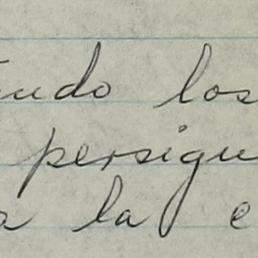 ndo los
persigu
a la e